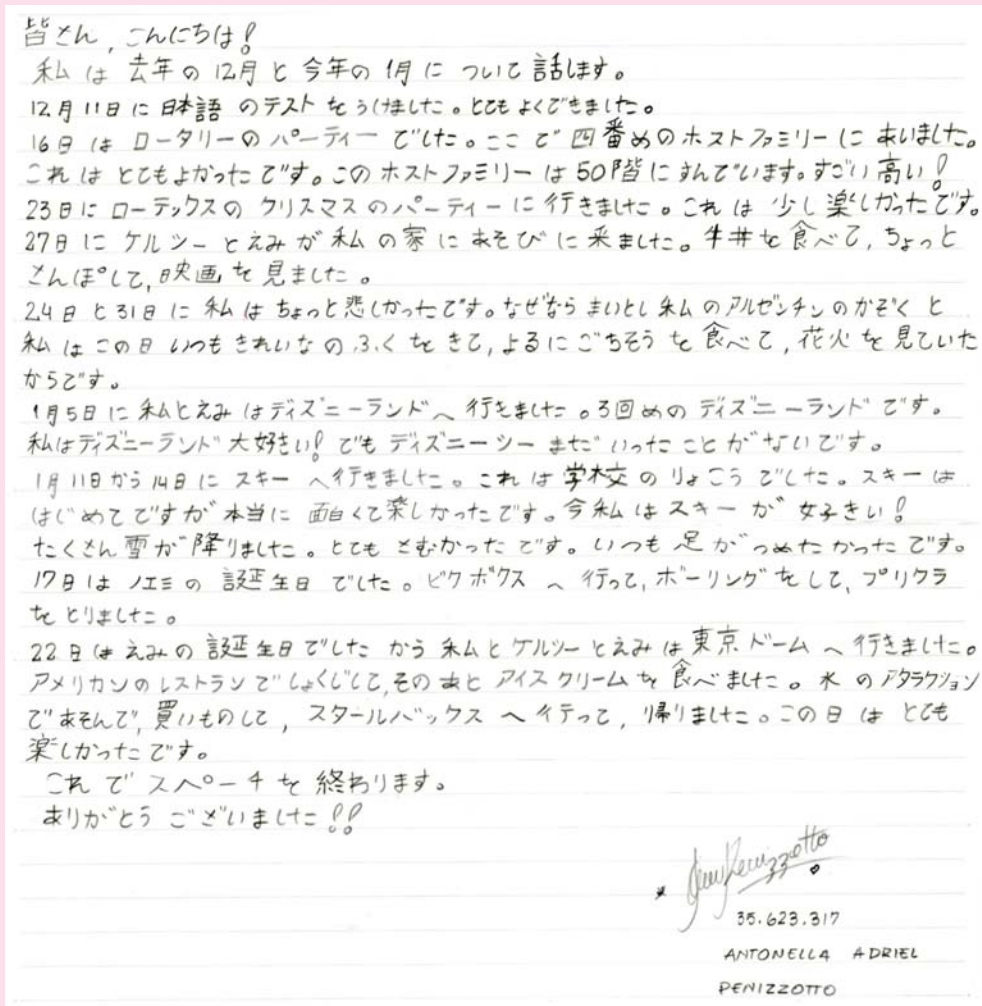 皆さん,こんにちは!
私は去年の12月と今年の1月について話します。
12月11日に日本語のテストをうけました。とてもよくできました。
16日はロータリーのパーティーでした。ここで四番めのホストファミリーにあいました。
これはとてもよかったです。このホストファミリーは50階にすんでいます。すごい高い!
23日にローテックスのクリスマスのパーティーに行きました。これは少し楽しかったです。
27日にケルシーとえみが私の家にあそびに来ました。牛丼を食べて,ちょっと
さんぽして,映画を見ました。
24日と31日に私はちょっと悲しかったです。なぜならまいとし私のアルゼンチンのかぞくと
私はこの日いつもきれいなのふくをきて,よるにごちそうを食べて,花火を見ていた
からです。
1月5日に私とえみはディズニーランドへ行きました。3回めのディズニーランドです。
私はディズニーランド大好きい!でもディズニーシーまだいったことがないです。
1月11日から14日にスキーへ行きました。これは学校のりょこうでした。スキーは
はじめてですが本当に面白くて楽しかったです。今私はスキーが好きい!
たくさん雪が降りました。とてもさむかったです。いつも足がつめたかったです。
17日はノエミの誕生日でした。ビクボクスへ行って,ボーリングをして,プリクラ
をとりました。
22日はえみの誕生日でしたから私とケルシーとえみは東京ドームへ行きました。
アメリカンのレストランでしょくじして,そのあとアイスクリームを食べました。水のアタラクション
であそんで,買いものして,スタールバックスへ行って,帰りました。この日はとても
楽しかったです。
これでスペーチを終わります。
ありがとうございました!!
35.623.317
ANTONELLA ADRIEL
PENIZZOTTO